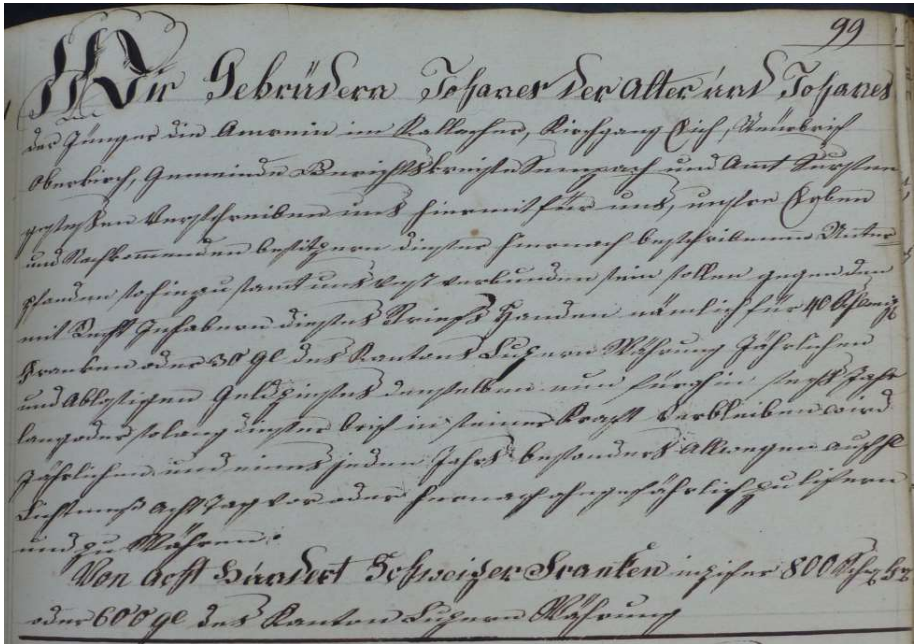 99
Wir Gebrüdern Johanes der Alter und Johanes
der Jünger die Amrein im Kallacher, Kirchgang Eich,
Oberkirch, Gemeinde Sempach und Amt Sursee
verschreiben uns hiermit für uns, unsre Erben
und Nachkommenden besitzern dieser hiernach beschribenen Unter
pfanden samt uns vest verbunden sein sollen gegen den
mit Recht Inhabern dieses Briefs Handen nämlich für 40 Schweiz
Franken oder 30 gl des Kantons Luzern Währung Jährlichen
und Ablosigen Geldzinses denselben nun fürohin sechs Jahr
lang oder solang dieser brief in seiner Kraft verbleiben wird
Jährlichen und eines jeden Jahrs besonders Allwegen auf hl
Lichtmeß acht Tag vor oder hernach ohngefährlich zu lifern
und zu Währen.
Von acht Hundert Schweizer Franken in 800
oder 600 gl des Kanton Luzern Währung